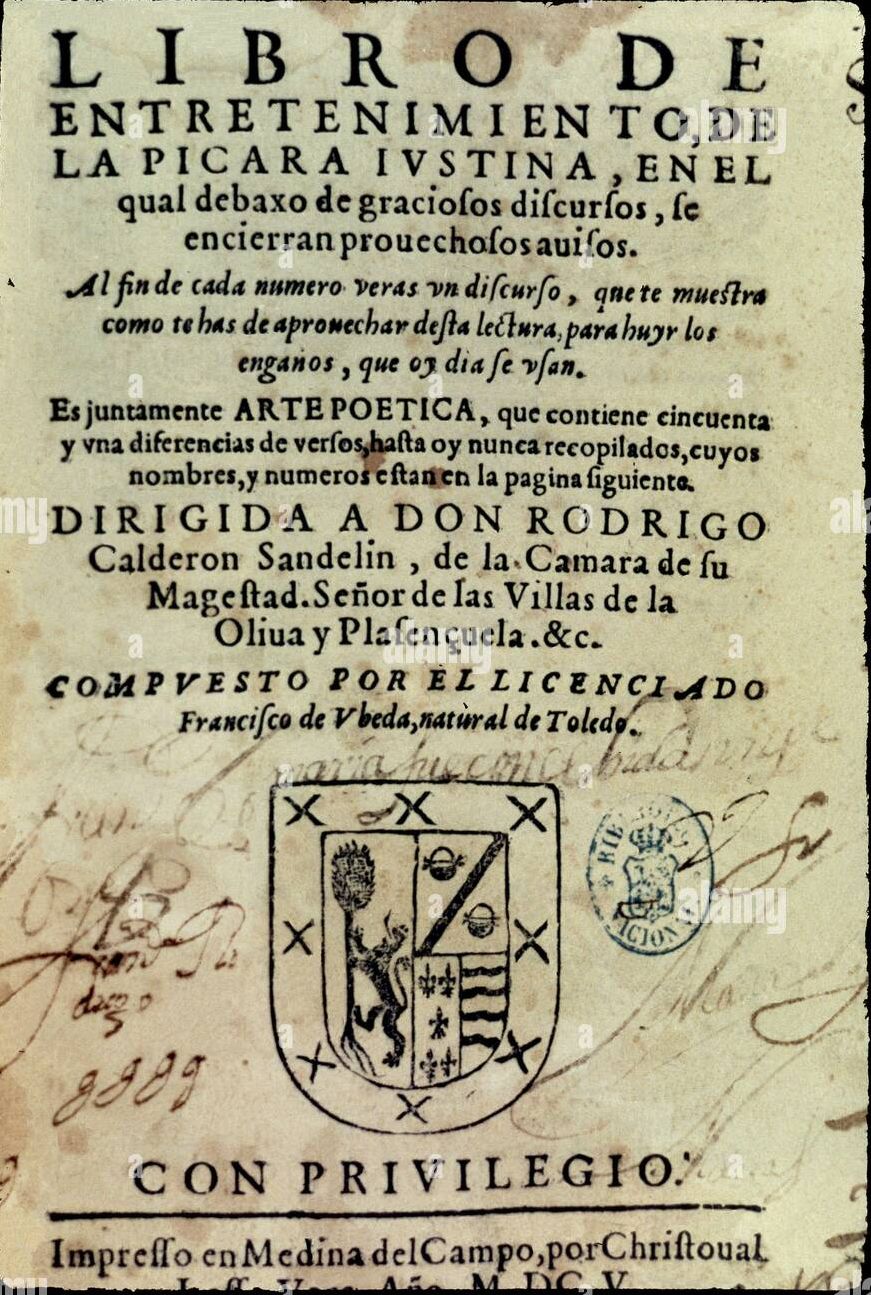 LIBRO DE
ENTRETENIMIENTO, DE
LA PICARA IVSTINA, EN EL
qual debaxo de graciosos discursos, se
encierran prouechosos auisos.
Al fin de cada numero veras vn discurso, que te muestra
como te has de aprouechar desta lectura, para huyr los
enganos, que oy dia se vsan.
Es juntamente ARTE POETICA, que contiene cincuenta
y vna diferencias de versos, hasta oy nunca recopilados, cuyos
nombres, y numeros estan en la pagina siguiente.
DIRIGIDA A DON RODRIGO
Calderon Sandelin, de la Camara de su
Magestad. Señor de las Villas de la
Oliua y Plasençuela. &c.
COMPVESTO POR EL LICENCIADO
Francisco de Vbeda, natural de Toledo.
CON PRIVILEGIO.
Impresso en Medina del Campo, por Christoual
Lasso Vaca. Año, M. DC. V.
alamy